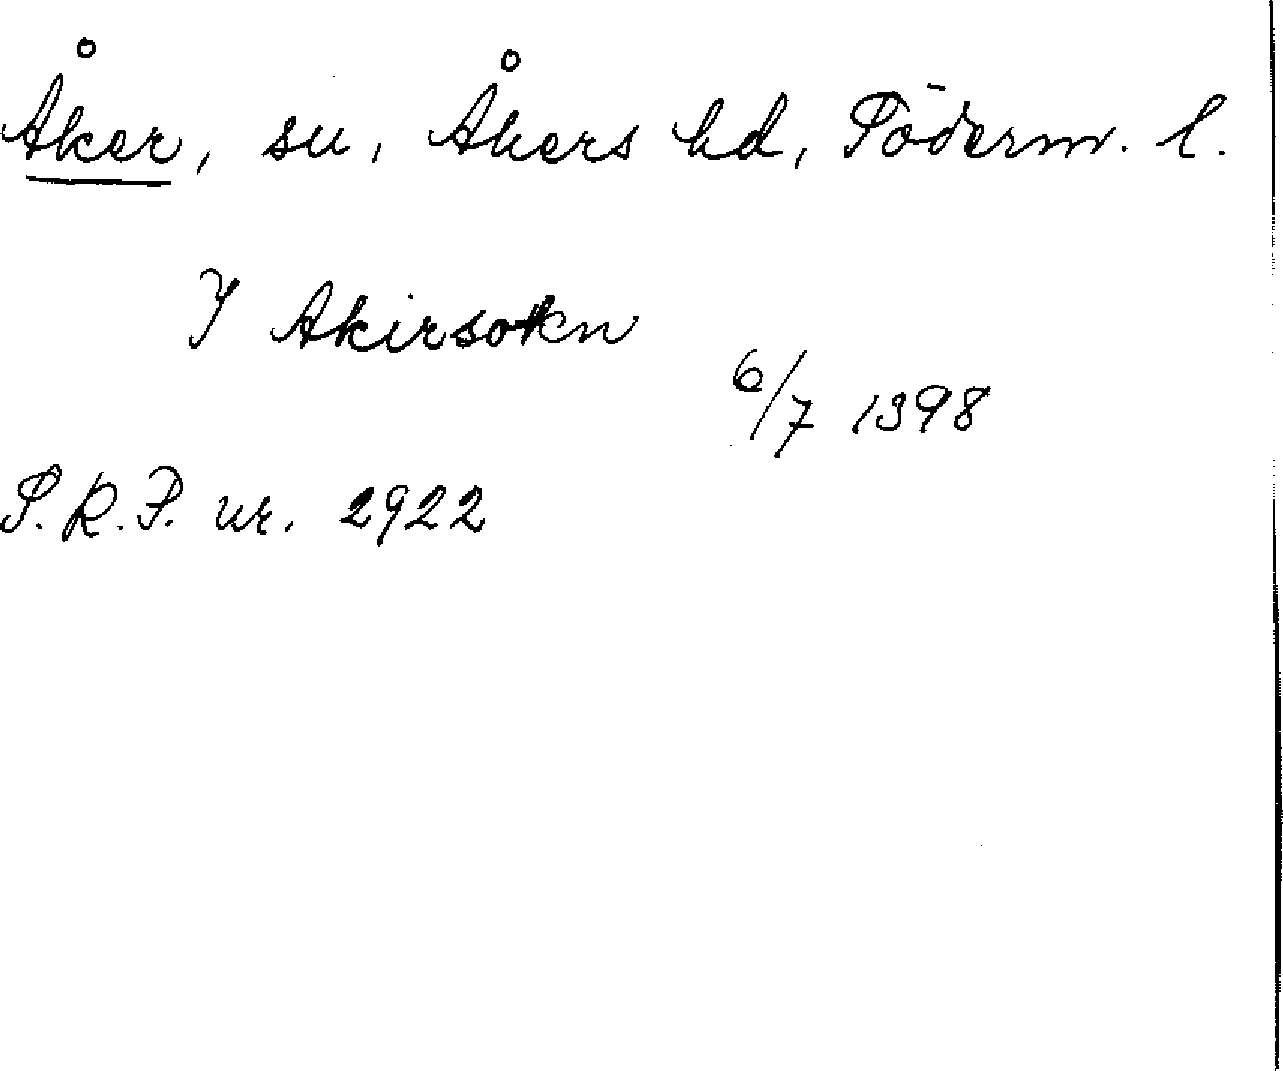 Åker, sn, Åkers hd, Söderm. l.
J Akirsokn
6/7 1398
S.R.P. nr. 2922